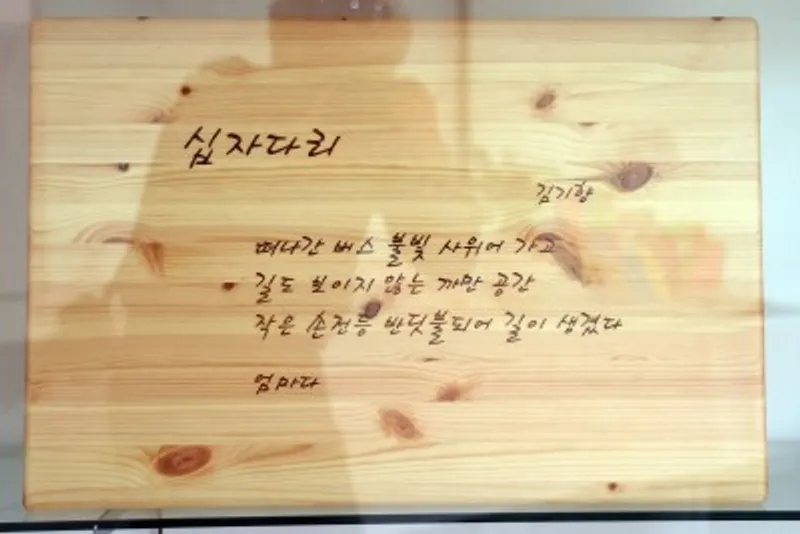 십자다리
김기향
떠나간 버스 불빛 사위어 가고
길도 보이지 않는 까만 공간
작은 손전등 반딧불되어 길이 생겼다
엄마다